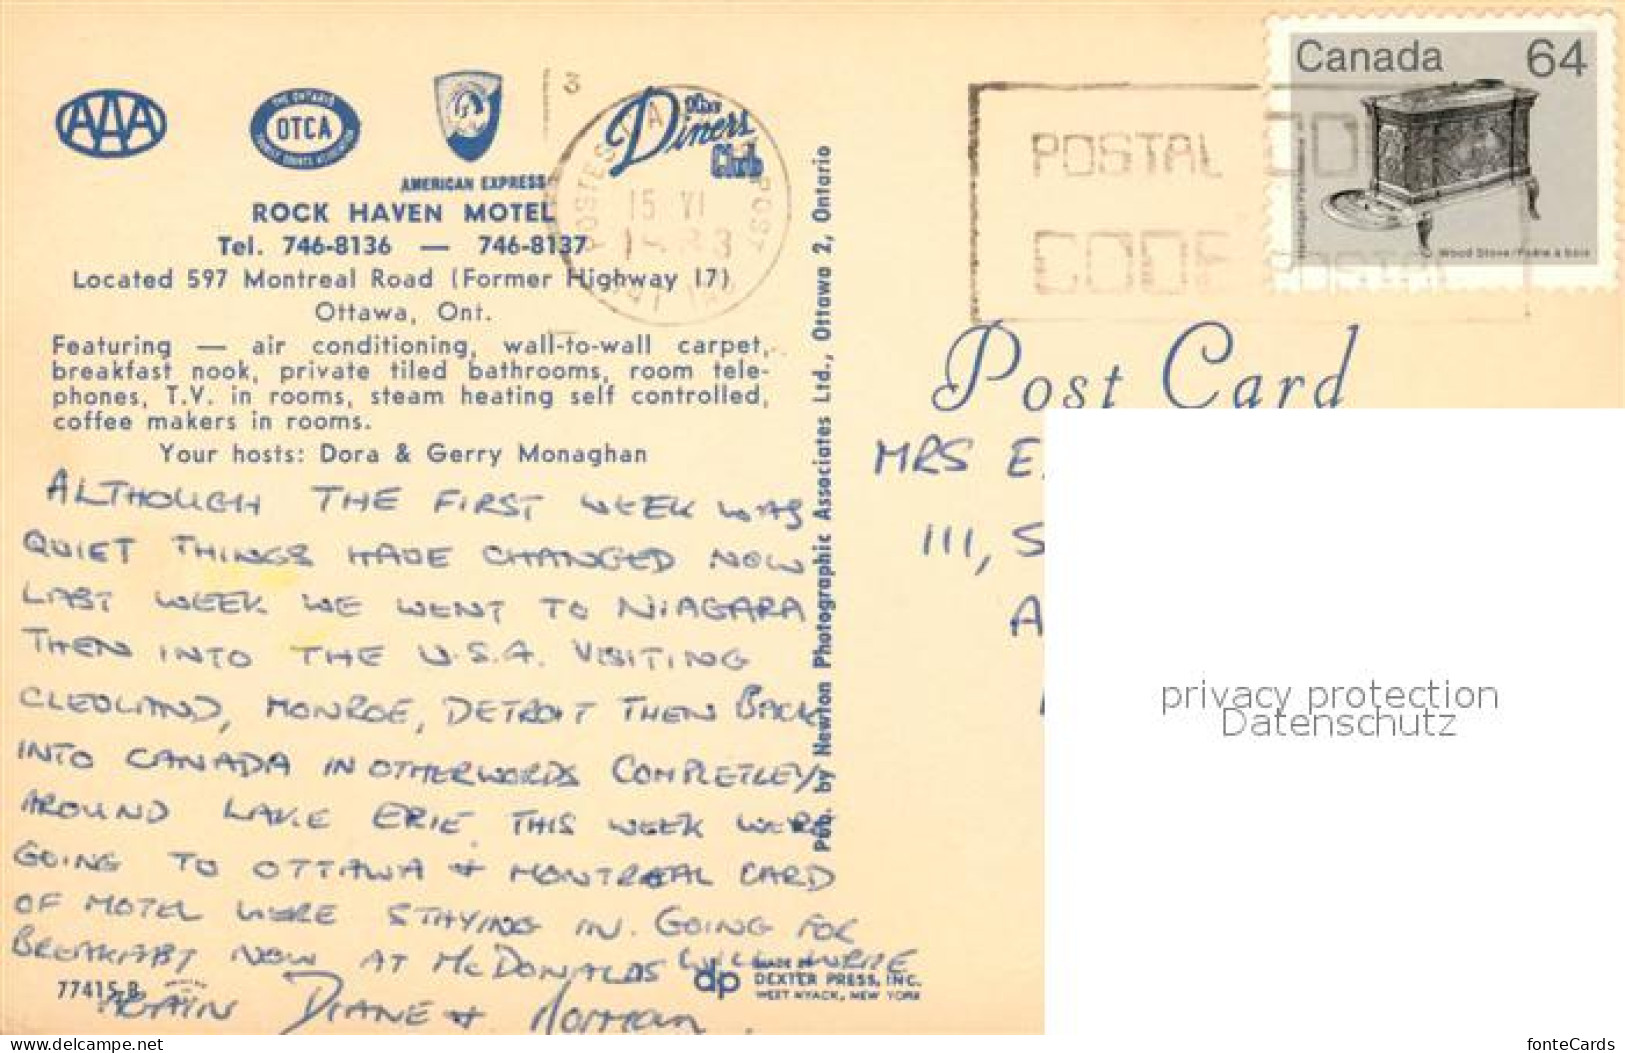 AAA
THE ONTARIO
OTCA
AMERICAN EXPRESS
Diners
Club
ROCK HAVEN MOTEL
Tel. 746-8136 — 746-8137
Located 597 Montreal Road (Former Highway 17)
Ottawa, Ont.
Featuring — air conditioning, wall-to-wall carpet,
breakfast nook, private tiled bathrooms, room tele-
phones, T.V. in rooms, steam heating self controlled,
coffee makers in rooms.
Your hosts: Dora & Gerry Monaghan
ALTHOUGH THE FIRST WEEK WAS
QUIET THINGS HAVE CHANGED NOW
LAST WEEK WE WENT TO NIAGARA
THEN INTO THE U.S.A. VISITING
CLEVLAND, MONROE, DETROIT THEN BACK
INTO CANADA IN OTHERWORDS COMPLETLEY
AROUND LAKE ERIE THIS WEEK WERE
GOING TO OTTAWA + MONTREAL CARD
OF MOTEL WERE STAYING IN. GOING FOR
BREAKFAST NOW AT McDONALDS WILL WRITE
AGAIN DIANE + Norman.
77415-B
dp MADE BY
DEXTER PRESS, INC.
WEST NYACK, NEW YORK
Pub. by Newton Photographic Associates Ltd., Ottawa 2, Ontario
3
15 VI
POSTAL CODE
CODE POSTAL
Canada 64
Wood Stove/Poêle à bois
Post Card
MRS E.
111, S
A
privacy protection
Datenschutz
www.delcampe.net
fonteCards